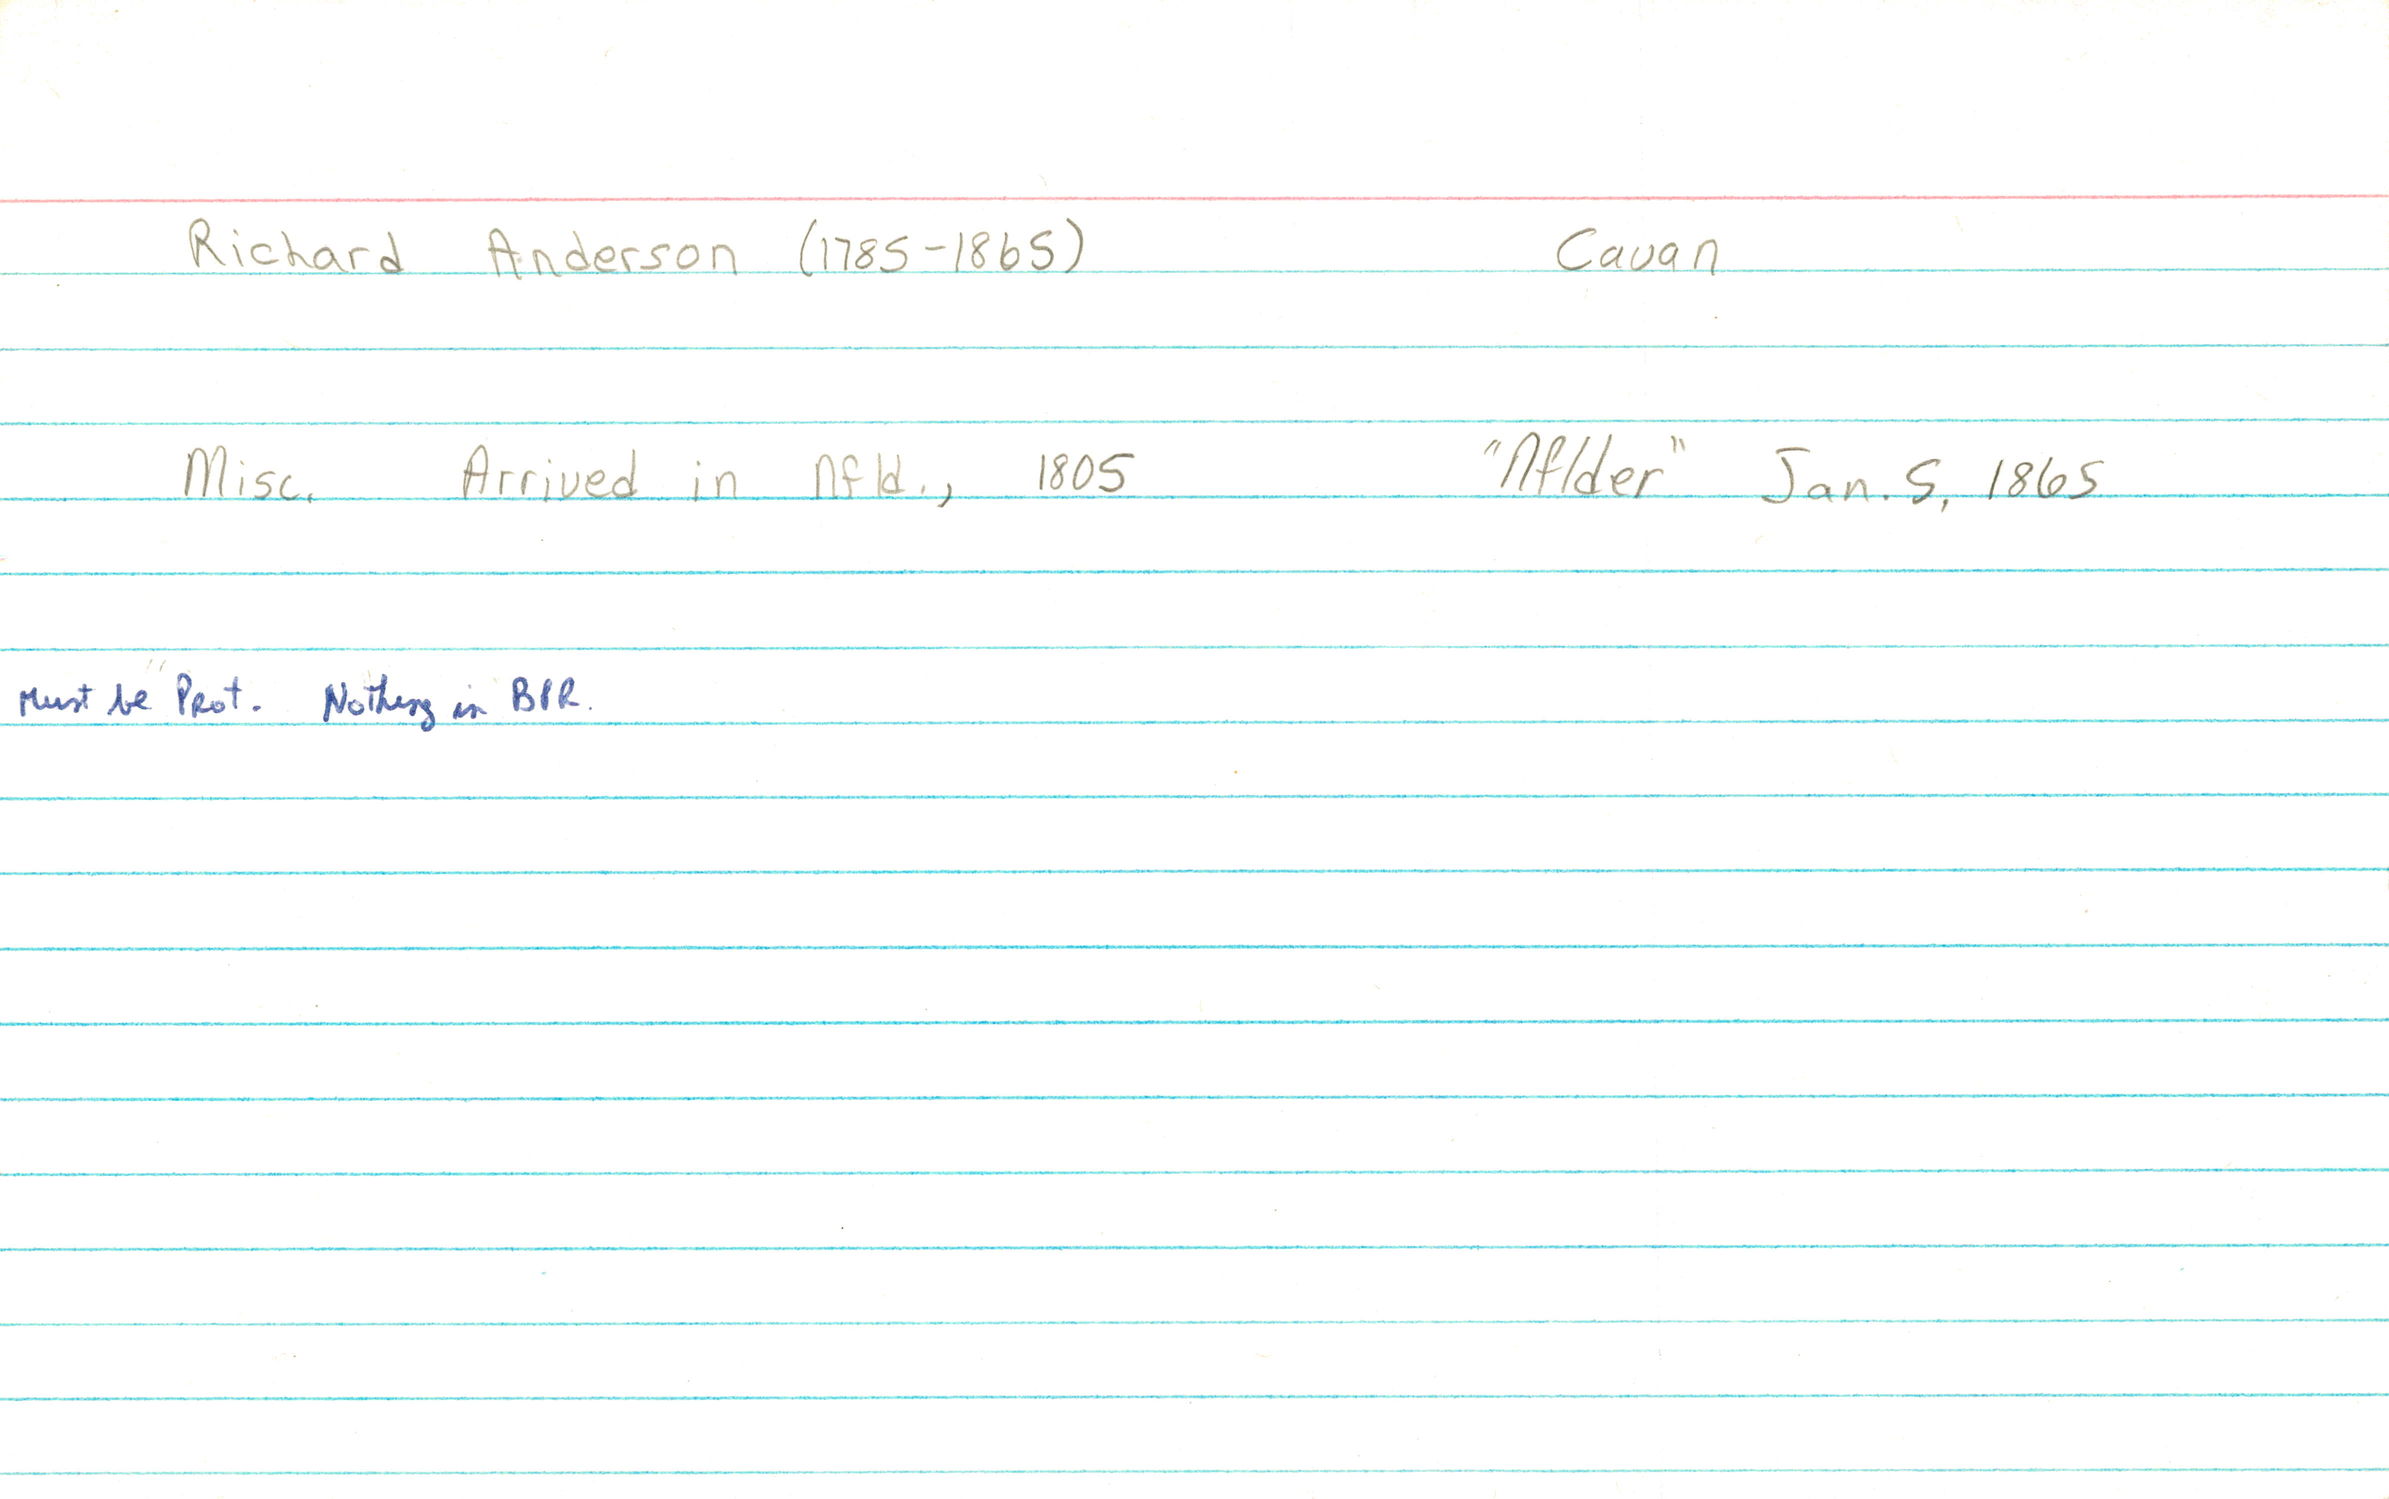 Richard Anderson (1785-1865) Cavan
Misc. Arrived in Nfld., 1805 "Nflder" Jan. 5, 1865
Must be Prot. Nothing in BPR.